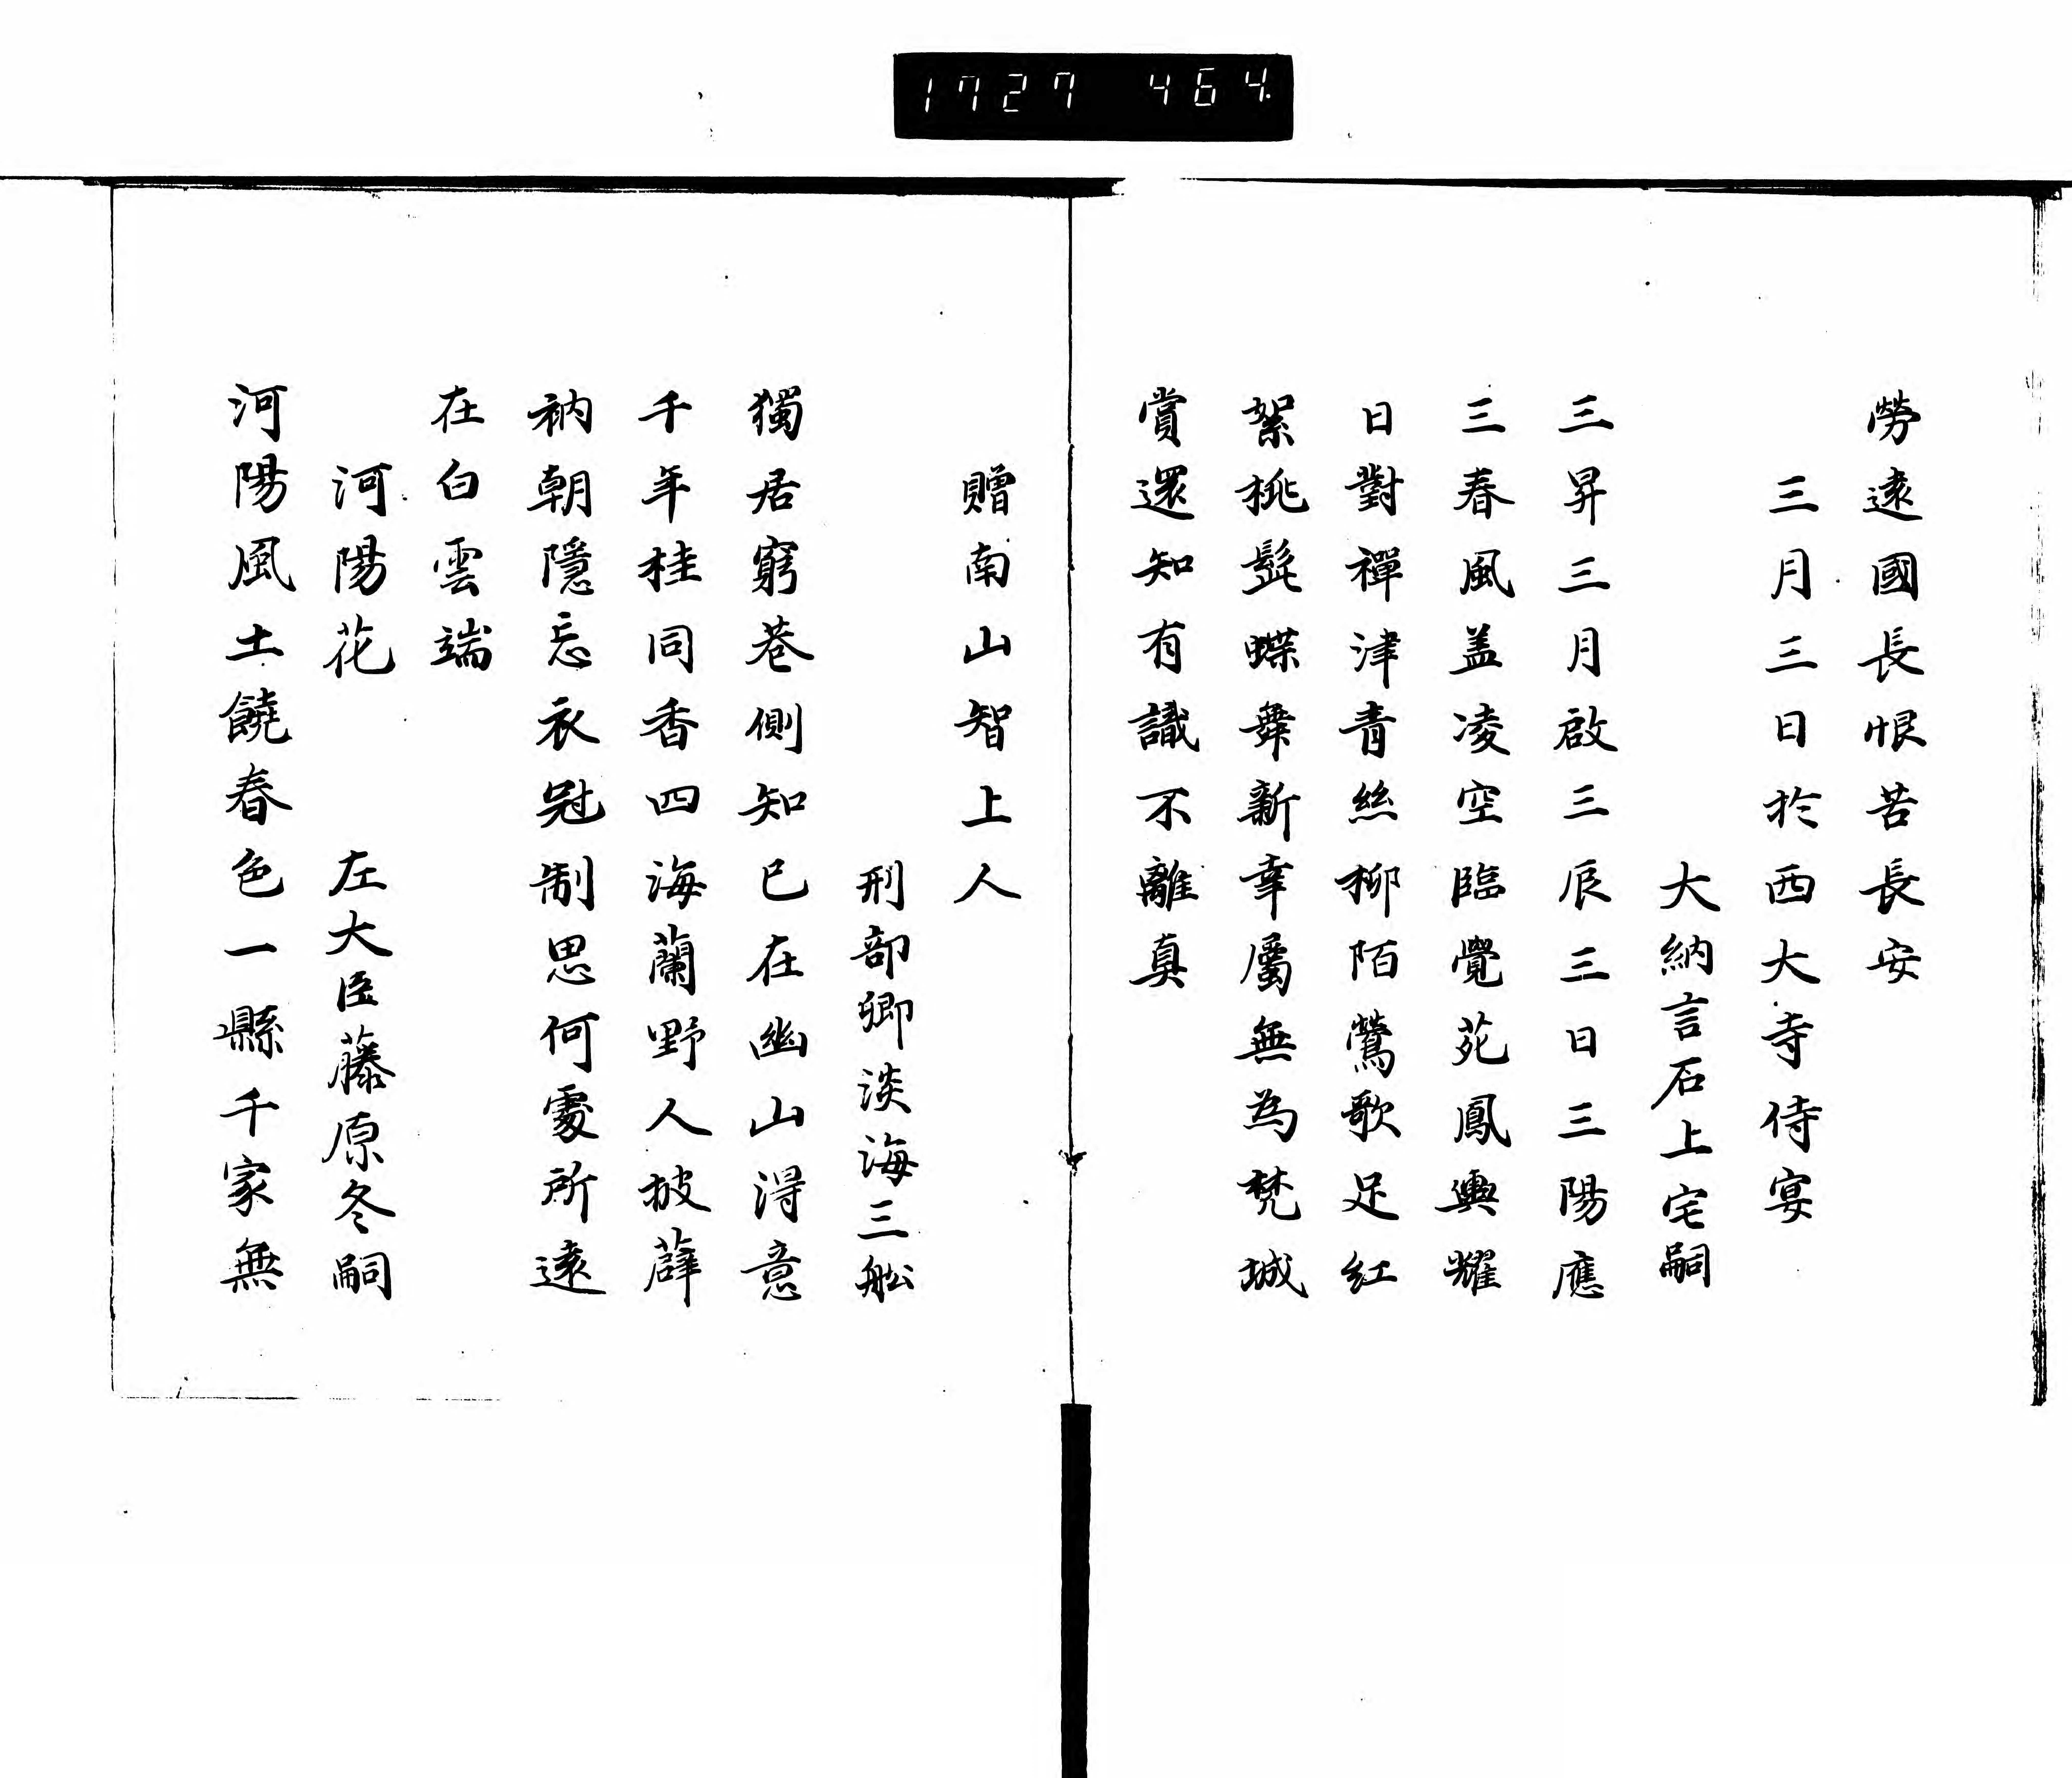 1727 464
勞遠國長恨苦長安
三月三日於西大寺侍宴
大納言石上宅嗣
三昇三月啟三辰三日三陽應
三春風盖凌空臨覺苑鳳輿耀
日對禪津青絲柳陌鶯歌足紅
絮桃髭蝶舞新幸屬無為梵城
賞還知有識不離真
贈南山智上人
刑部卿淡海三舩
獨居窮巷側知已在幽山得意
千年桂同香四海蘭野人披薜
衲朝隱忘衣冠制思何處所遠
在白雲端
河陽花
左大臣藤原冬嗣
河陽風土饒春色一縣千家無